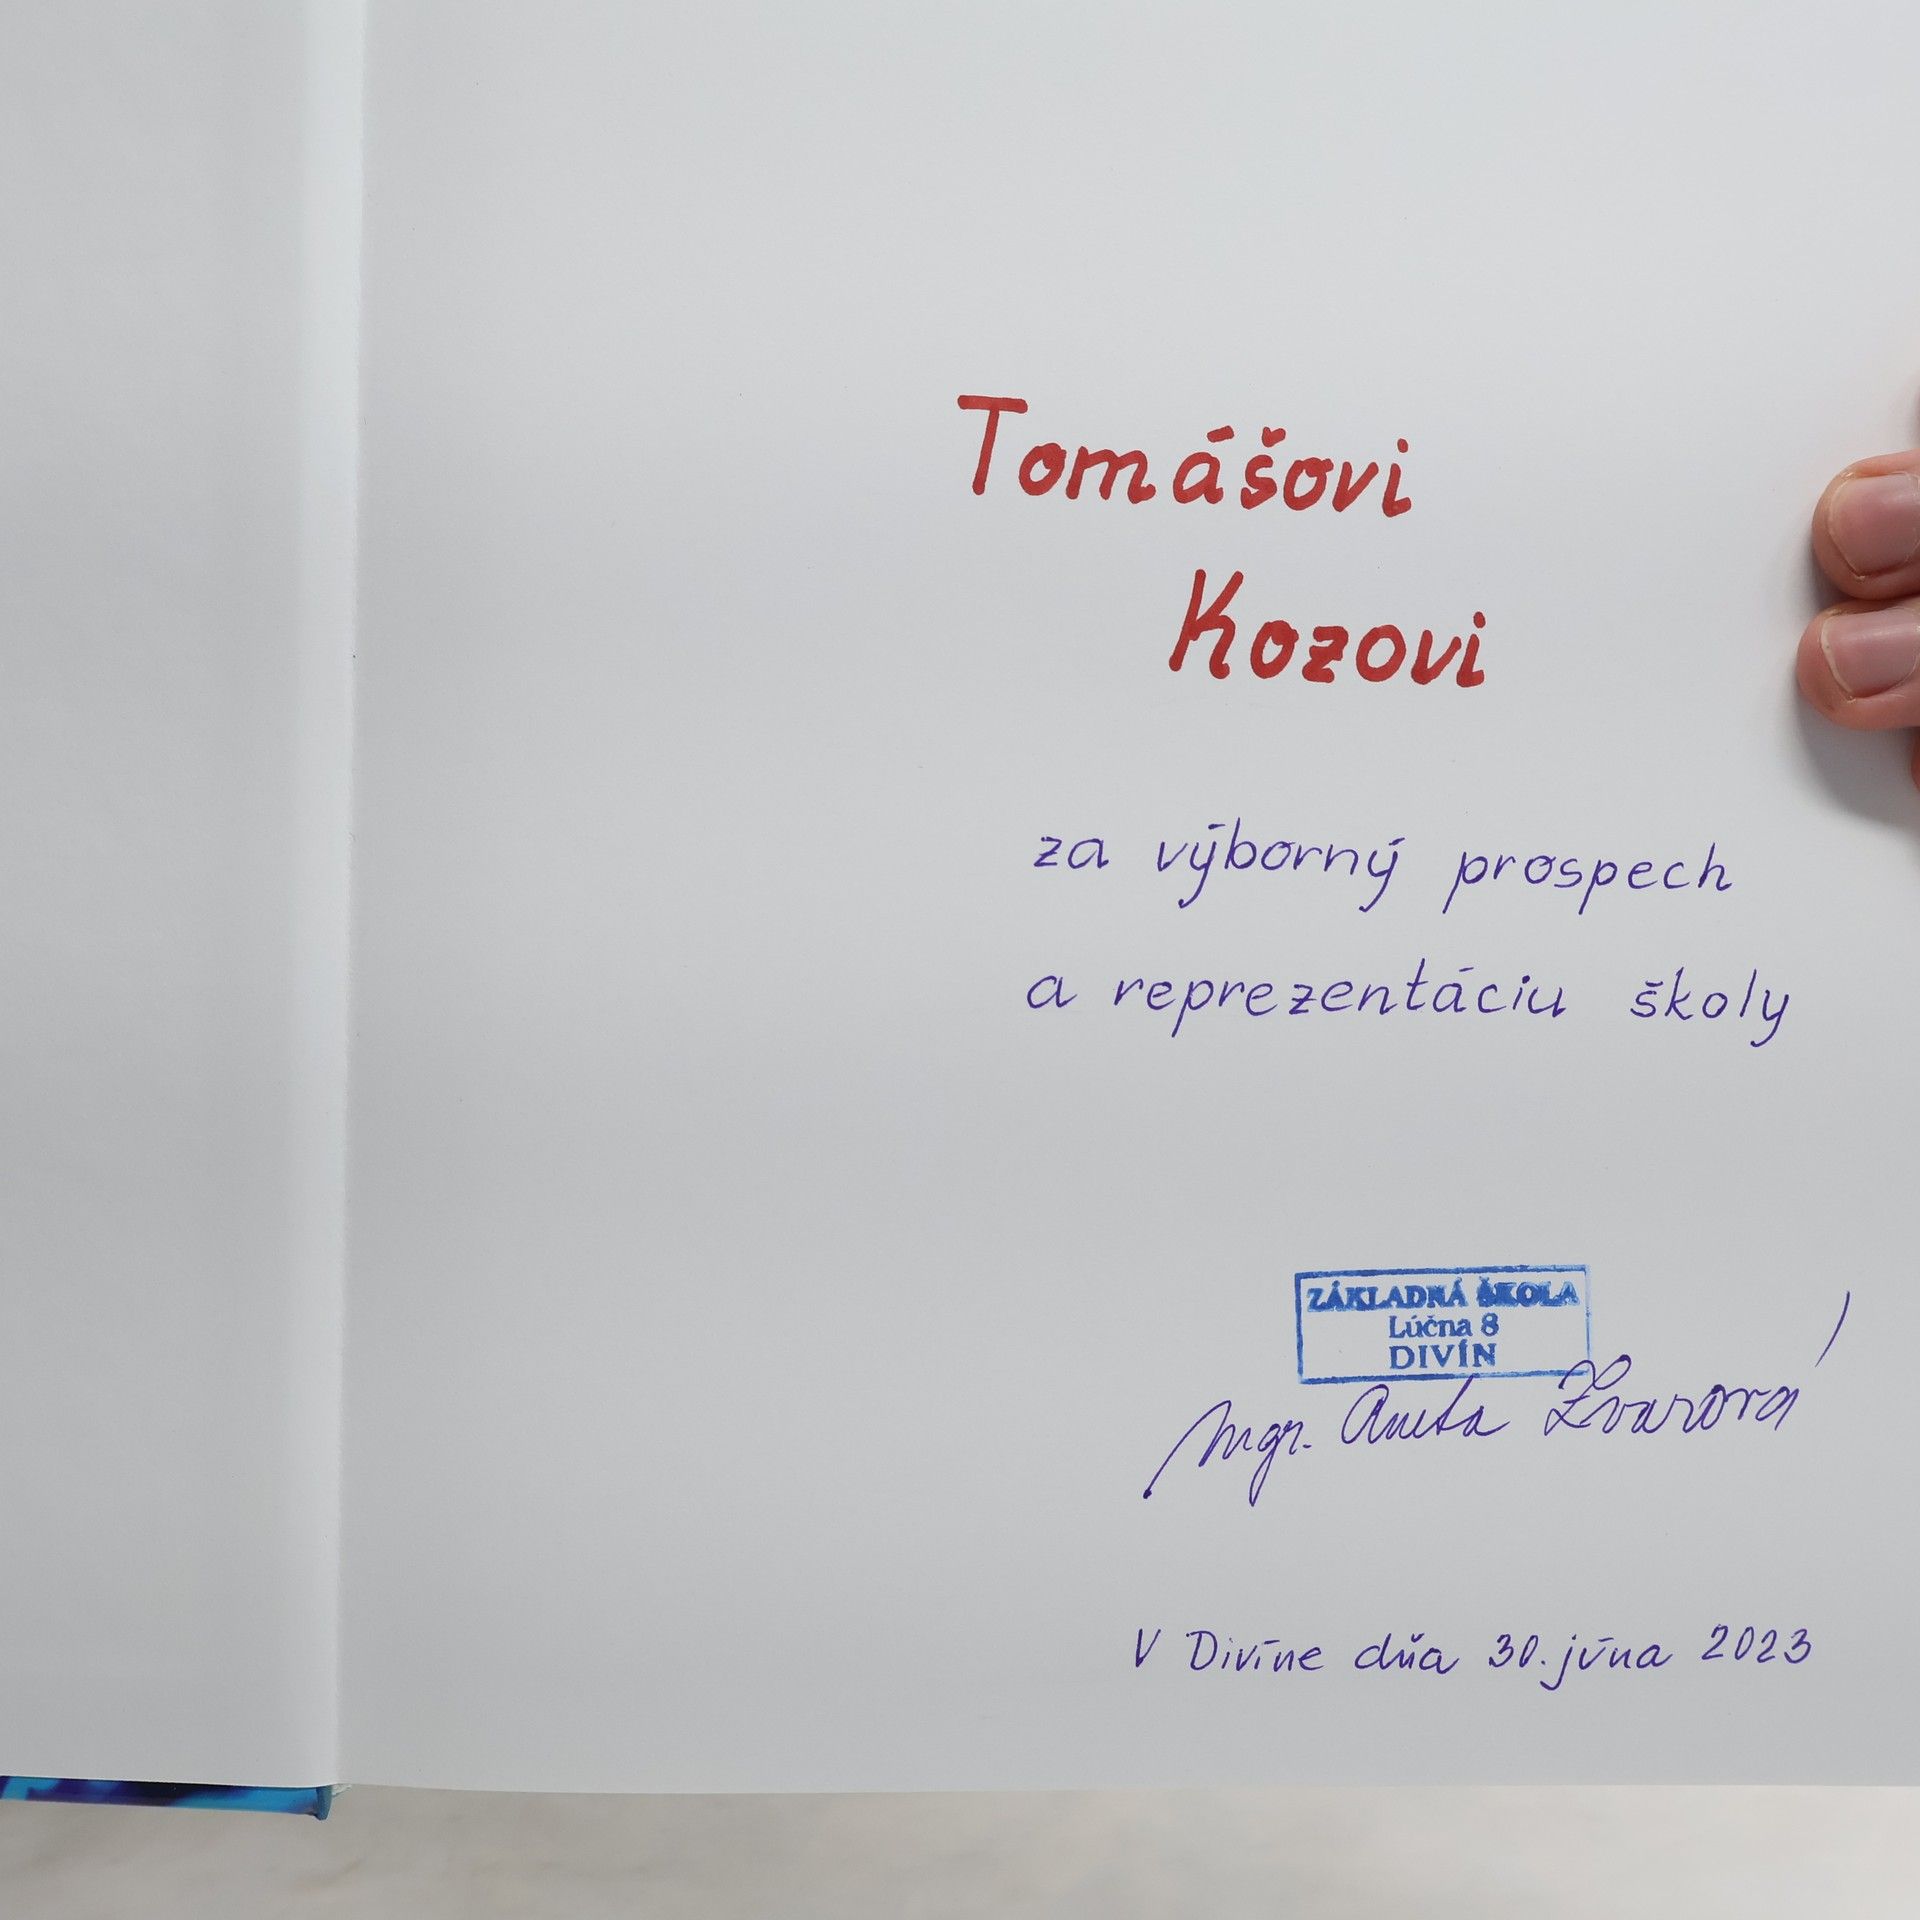 Tomášovi
Kozovi
za výborný prospech
a reprezentáciu školy
ZÁKLADNÁ ŠKOLA
Lúčna 8
DIVÍN
Mgr. Aneta Zvarová
V Divíne dňa 30. júna 2023